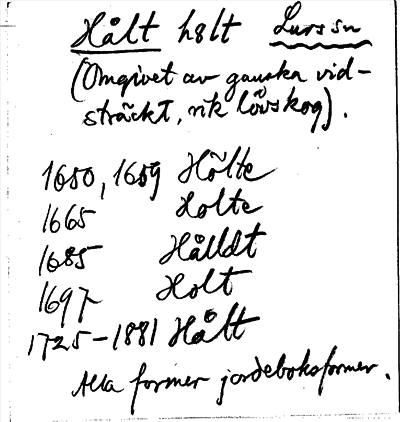 Hålt hålt Lurs sn
(Omgivet av ganska vid-
sträckt, rik lövskog).
1650, 1659 Hölte
1665 Holte
1685 Hålldt
1697 Holt
1725-1881 Hålt
Alla former jordeboksformer.